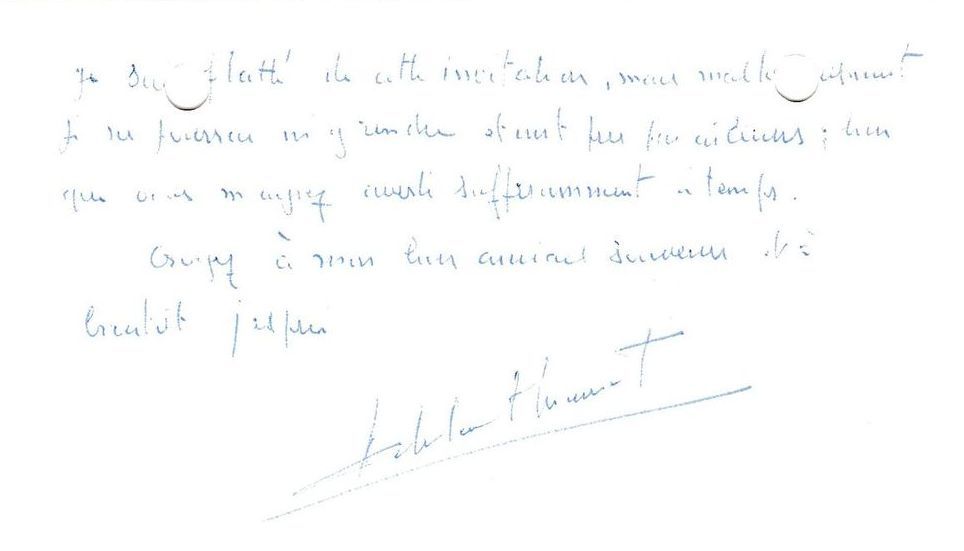 Je suis flatté de cette invitation, mais malheureusement
je ne pourrai m'y rendre étant pris par ailleurs ; bien
que vous m'ayez averti suffisamment à temps.
Croyez à mon bien amical souvenir et à
bientôt j'espère